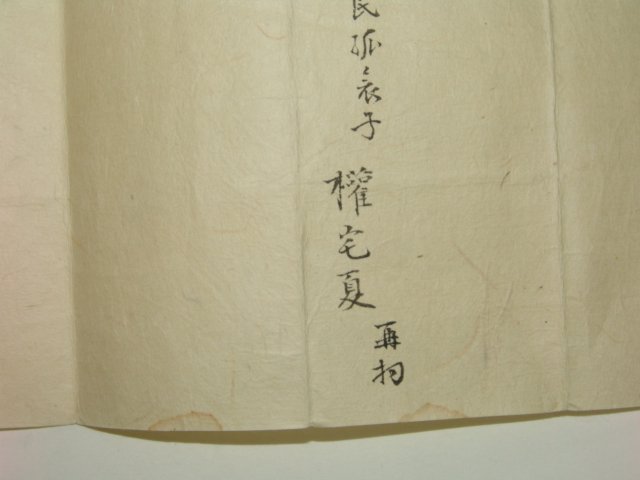 民孤哀子 權宅夏 再拜